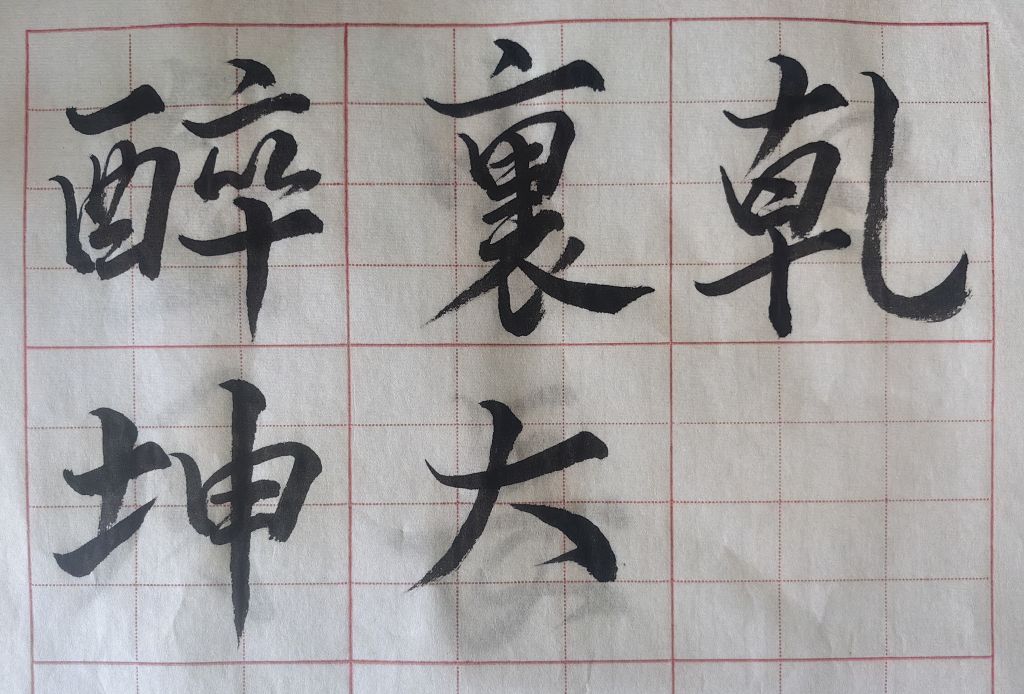 醉裏乾
坤大